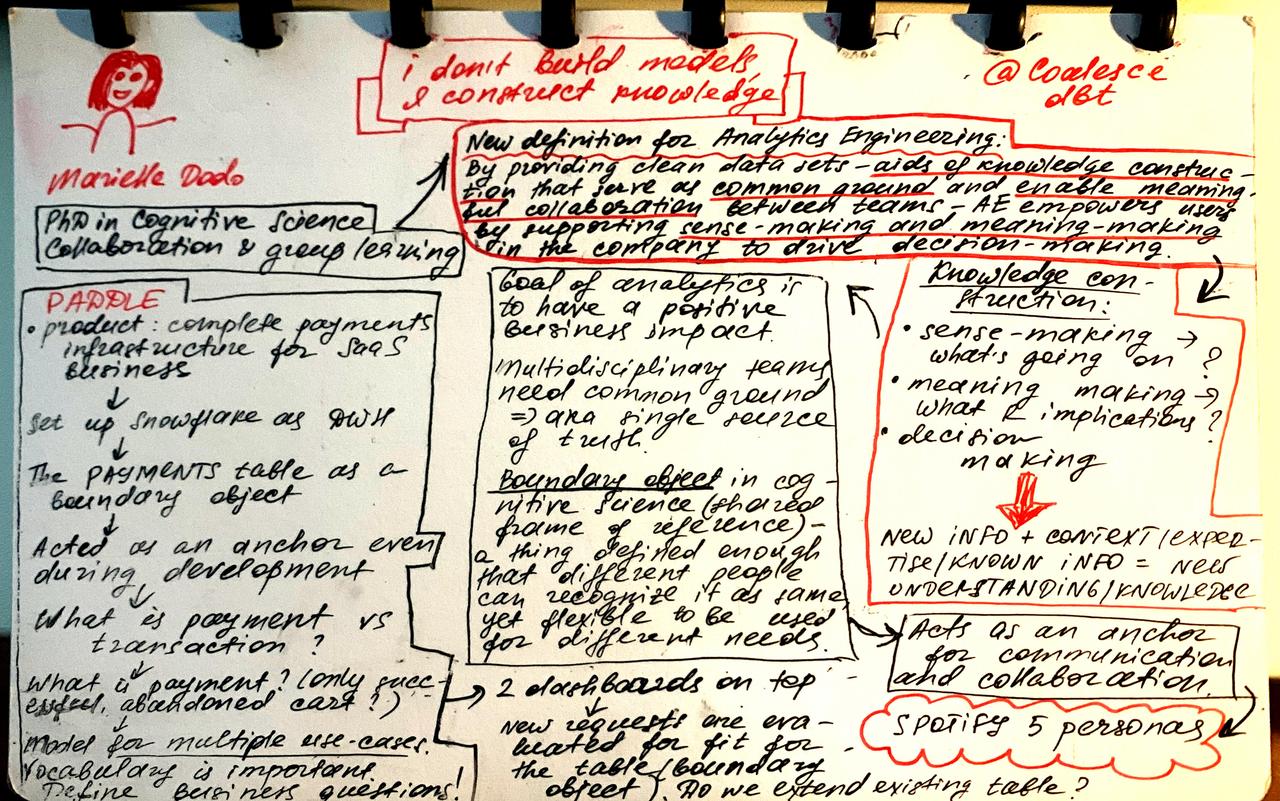 i don't build models
I construct knowledge
@Coalesce
dbt
Marielle Dado
PhD in Cognitive Science
Collaboration & group learning
New definition for Analytics Engineering:
By providing clean data sets – aids of knowledge construc-
tion that serve as common ground and enable meaning-
ful collaboration between teams – AE empowers users
by supporting sense-making and meaning-making
in the company to drive decision-making.
PADDLE
• product: complete payments
infrastructure for SaaS
business
↓
Set up Snowflake as DWH
↓
The PAYMENTS table as a
boundary object
↓
Acted as an anchor even
during development
↓
What is payment vs
transaction?
↓
What is payment? (only succ-
essful, abandoned cart?)
↓
Model for multiple use-cases.
Vocabulary is important.
Define business questions!
Goal of analytics is
to have a positive
business impact.
Multidisciplinary teams
need common ground
=> aka single source
of truth.
Boundary object in cog-
nitive science (shared
frame of reference) –
a thing defined enough
that different people
can recognize it as same,
yet flexible to be used
for different needs.
→ 2 dashboards on top
↓
New requests are eva-
luated for fit for
the table (boundary
object). Do we extend existing table?
Knowledge con-
struction:
• sense-making →
what's going on?
• meaning making →
what implications?
• decision
making
New INFO + CONTEXT/EXPER-
TISE/KNOWN INFO = NEW
UNDERSTANDING/KNOWLEDGE
Acts as an anchor
for communication
and collaboration.
SPOTIFY 5 personas